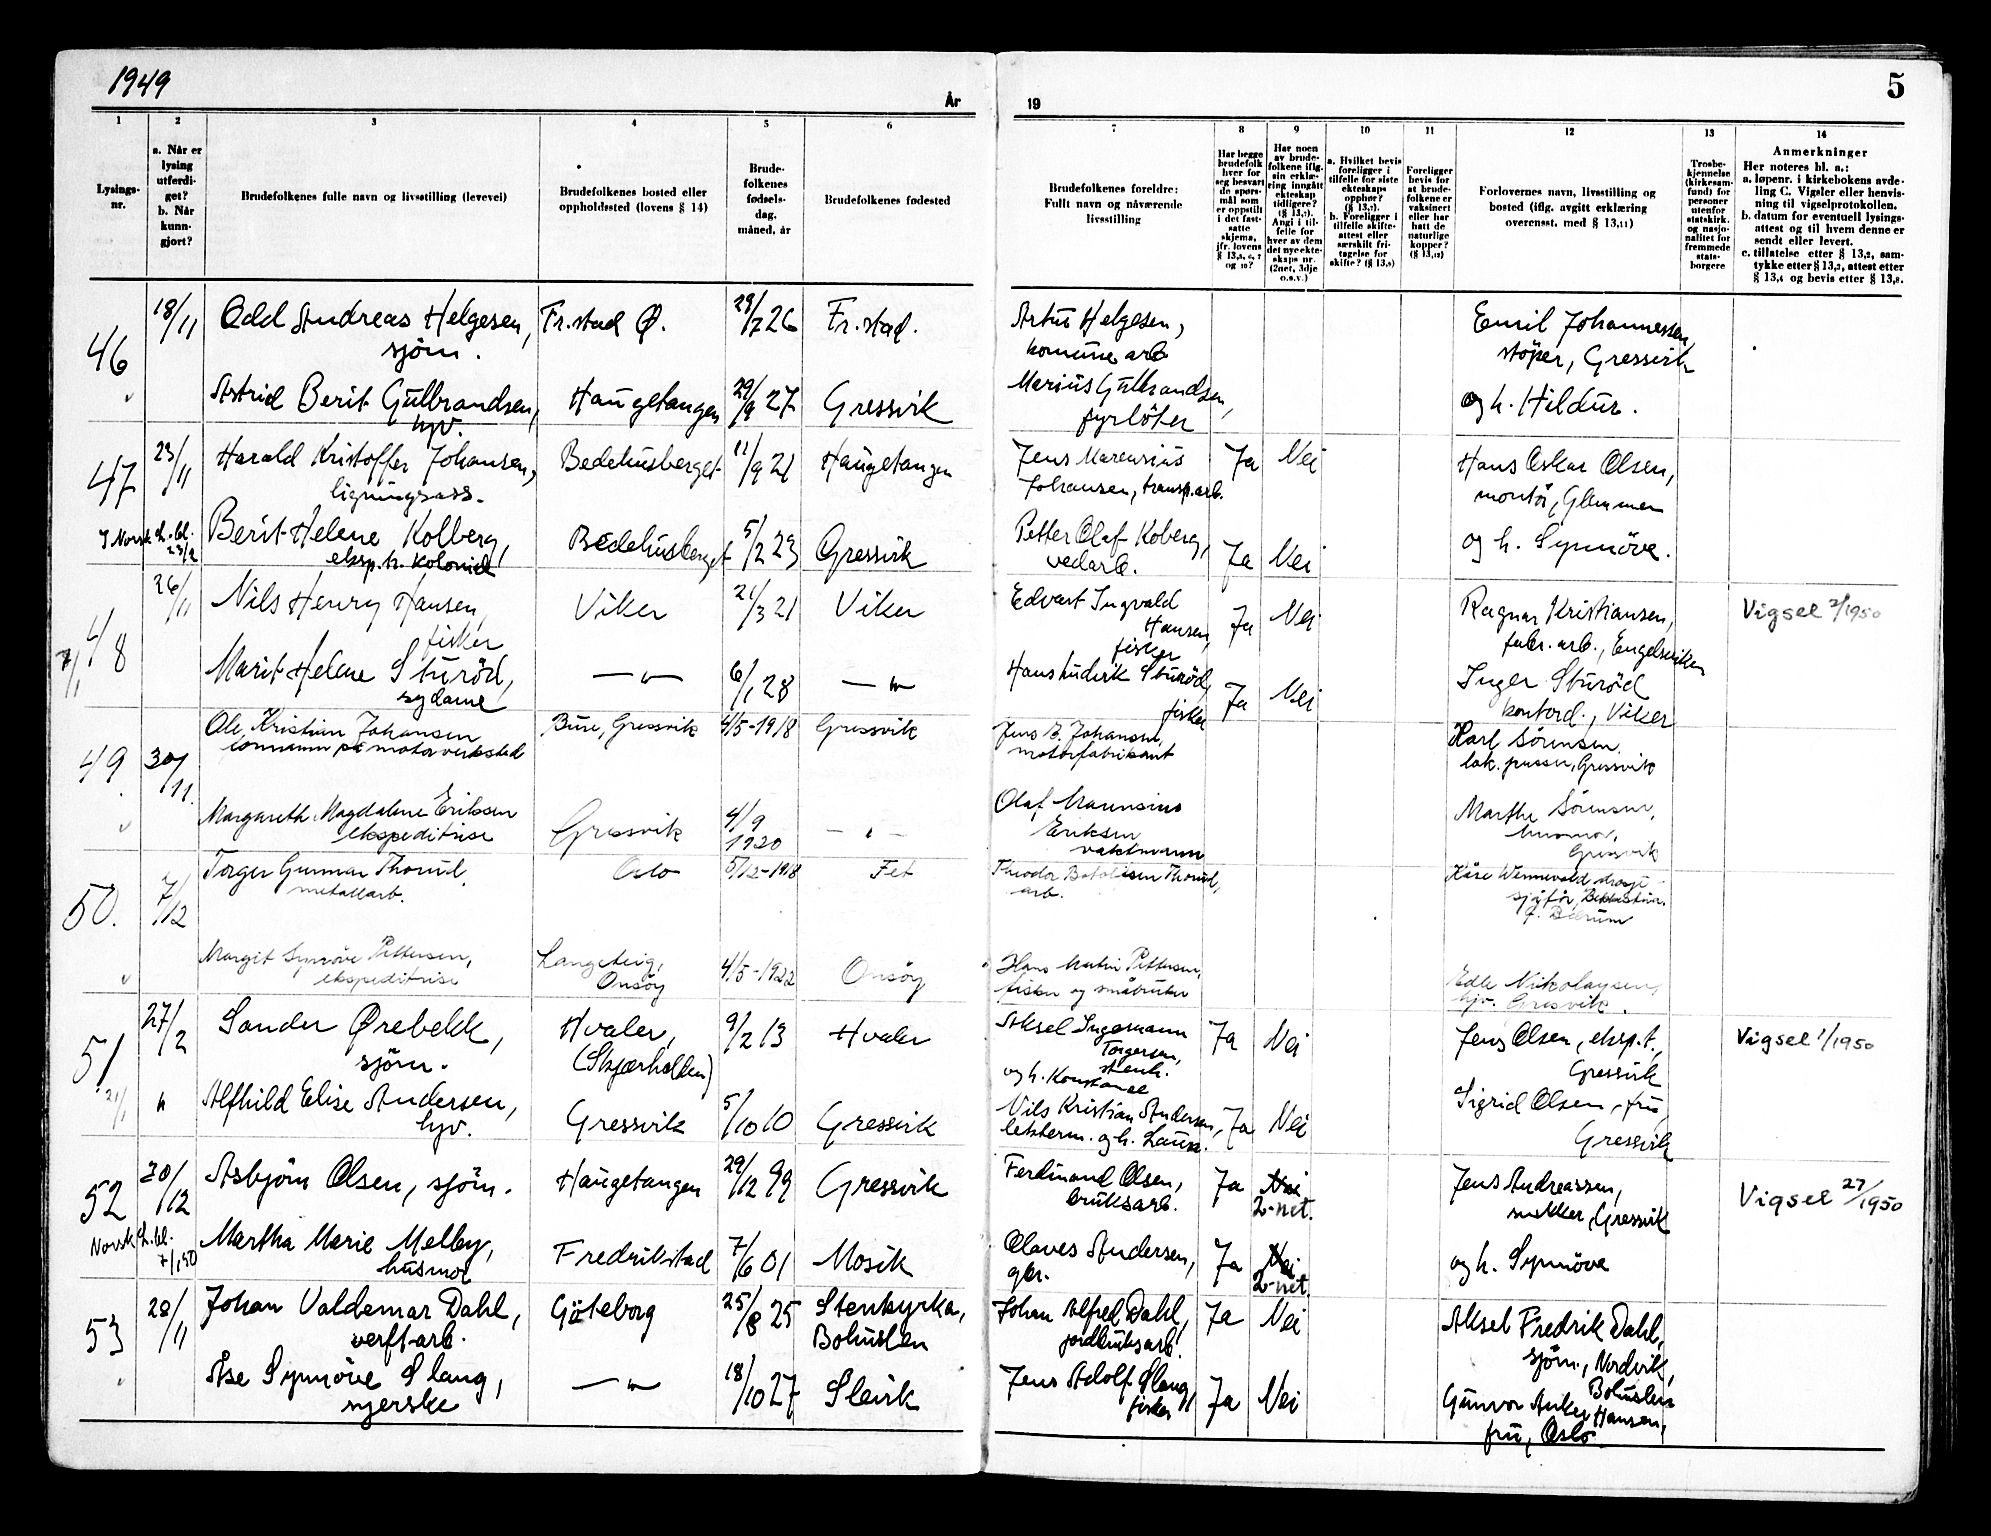 1949
År
19
5
1
2
3
4
5
6
7
8
9
10
11
12
13
14
Lysings-
nr.
a. Når er
lysing
utferdi-
get?
b. Når
kunn-
gjort?
Brudefolkenes fulle navn og livsstilling (levevei)
Brudefolkenes bosted eller
oppholdssted (lovens § 14)
Brude-
folkenes
fødsels-
dag,
måned, år
Brudefolkenes fødested
Brudefolkenes foreldre:
Fullt navn og nåværende
livsstilling
Har begge
brudefolk
hver for
seg besvart
de spørs-
mål som
er oppstilt
i det fast-
satte
skjema,
jfr. lovens
og 10?
Har noen
av brude-
folkene iflg.
sin erklæ-
ring inngått
ekteskap
tidligere?
(§ 13,7).
Angi i til-
felle for
hver av dem
det nye ekte-
skaps nr.
(2net, 3dje
o.s.v.)
a. Hvilket bevis
foreligger i
tilfelle for siste
ekteskaps
opphør?
(§ 13,7).
b. Foreligger i
tilfelle skifte-
attest eller
særskilt fri-
tagelse for
skifte? (§ 13,8)
Foreligger
bevis for
at brude-
folkene er
vaksinert
eller har
hatt de
naturlige
kopper?
(§ 13,12)
Forlovernes navn, livsstilling og
bosted (iflg. avgitt erklæring
overensst. med § 13,11)
Trosbe-
kjennelse
(kirkesam-
fund) for
personer
utenfor
statskirk.
og nasjo-
nalitet for
fremmede
stats-
borgere
Anmerkninger
Her noteres bl. a.:
a. løpenr. i kirkebokens avde-
ling C. Vigsler eller henvis-
ning til vigselprotokollen.
b. datum for eventuell lysings-
attest og til hvem denne er
sendt eller levert.
c. tillatelse etter § 13,2, sam-
tykke etter § 13,3, attest etter
§ 13,4 og bevis etter § 13,8.
46
18/11
Odd Andreas Helgesen,
sjøm.
Fr.stad Ø.
29/7 26
Fr.stad.
Artur Helgesen,
komune arb
Emil Johannessen,
støper, Gressvik
Astrid Berit Gulbrandsen,
hjv.
Haugetangen
29/9 27
Gressvik
Marius Gulbrandsen,
fyrbøter
og h. Hildur.
47
23/11
Harald Kristoffer Johansen,
ligningsass.
Bedehusberget
11/9 21
Haugetangen
Jens Marensius
Johansen, transp.arb.
Ja
Nei
Hans Oskar Olsen,
montør, Glemmen
Berit Helene Kolberg,
eksp. h. kolonial
Bedehusberget
5/2 23
Gressvik
Petter Olaf Koberg,
vedarb.
Ja
Nei
og h. Synnöve.
48
7/1
26/11
Nils Henry Hansen,
fisker
Viker
21/3 21
Viker
Edvart Ingvald
Hansen,
fisker
Ja
Nei
Ragnar Kristiansen,
fabr. arb., Engelsviken
Vigsel 2/1950
Marit Helene Sturöd,
sydame
— " —
6/1 28
— " —
Hans Ludvik Sturöd,
fisker
Ja
Nei
Inger Sturöd
kontord., Viker
49
30/11.
Ole Kristian Johansen
formann på motorverksted
Bue, Gressvik
4/5-1918
Gressvik
Jens E. Johansen,
motorfabrikant
Karl Sörensen
lok. pusser, Gressvik
Margareth Magdalene Eriksen
ekspeditrise
Gressvik
4/9
1920
— " —
Olaf Marensius
Eriksen
vaktmann
Marthe Sörensen,
husmor,
Gressvik
50.
7/12
Torger Gunnar Thorud
metallarb.
Oslo
5/12-1918
Fet
Theodor Botolfsen Thorud,
arb.
Kåre Wennevold drosje-
sjåfør,
Margit Synnöve Pettersen,
ekspeditrise
Langeteig,
Onsöy
4/5-1922
Onsöy
Hans Martin Pettersen,
fisker og småbruker
Edle Nikolaysen,
hjv. Gressvik.
51
21/1
27/2
Sander Ørebekk,
sjøm.
Hvaler,
(Skjærhollen)
9/2 13
Hvaler
Aksel Ingemann
Torgersen,
stenh.
og h. Konstance
Ja
Nei
Jens Olsen, eksp.t.,
Gressvik
Vigsel 1/1950
"
Alfhild Elise Andersen,
hjv.
Gressvik
5/10 10
Gressvik
Nils Kristian Andersen,
lekterm. og h. Laura.
Ja
Nei
Sigrid Olsen, fru
Gressvik
52
20/12
Asbjørn Olsen, sjöm.
Haugetangen
29/12 99
Gressvik
Ferdinand Olsen,
bruksarb.
Ja
Nei
2-net.
Jens Andreassen,
snekker, Gressvik
Vigsel 27/1950
Norsk L.bl.
7/1.50
Martha Marie Melby,
husmor
Fredrikstad
7/6 01
Mosik
Olaves Andersen,
gbr.
Ja
Nei
2-net.
og h. Synnöve
53
28/11
Johan Valdemar Dahl,
verftarb.
Göteborg
25/8 25
Stenkyrka,
Bohuslen
Johan Alfred Dahl,
jordbruksarb.
Ja
Nei
Aksel Fredrik Dahl,
sjöm., Nordvik,
Bohuslen
Åse Synnöve Slang,
syerske
— " —
18/10 27
Slevik
Jens Adolf Slang,
fisker
Ja
Nei
Gunvor Anker Hansen,
fru, Oslo.